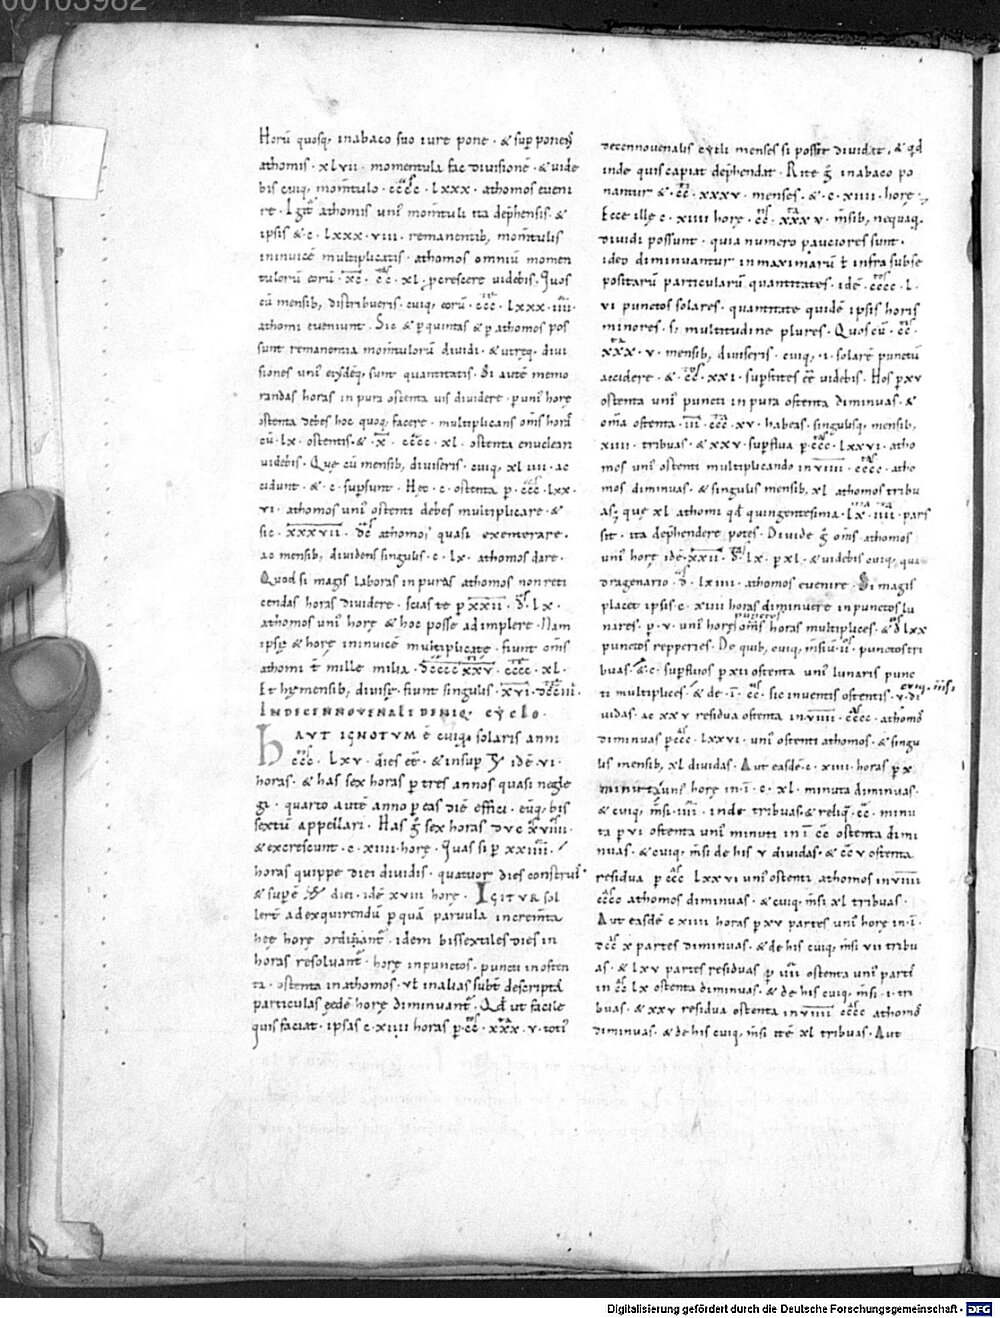 00103982
Horū quosq; in abaco suo iure pone · & sup ponens
athomis · xlvii · momentula fac divisionē · & vide
bis cuiq; momtulo · cccc · lxxx · athomos eveni
re · Igit athomis uni momtuli ita dephensis · &
ipsis & c · lxxx · viii · remanentib; momtulis
in invicē multiplicatis · athomos omniū momen
tulorū eorū · xc · cc · xl · percrescere videbis · Quos
cū mensib; distribueris · cuiq; eorū · ccc · lxxx · iiii ·
athomi eveniunt · Sic & p quintas & p athomos pos
sunt remanentia momtulorū dividi · & utreq; divi
siones uni eiusdēq; sunt quantitatis · Si autē memo
randas horas in pura ostenta vis dividere · p uni horę
ostenta debes hoc quoq; facere · multiplicans oms horas
cū · lx · ostentis · & · x · cccc · xl · ostenta enucleari
videbis · Quę cū mensib; diviseris · cuiq; xl iiii · ac
cidunt · & · c · supsunt · Hęc · c · ostenta p · ccc · lxx ·
vi · athomos uni ostenti debes multiplicare · &
sic · xxxvii · dc athomos quasi exemerare ·
ac mensib; dividens singulis · c · lx · athomos dare ·
Quod si magis laboras in puras athomos non reti
cendas horas dividere · scias te p xxii · d · lx ·
athomos uni horę & hoc posse adimplere · Nam
ipsę & horę in invicē multiplicatę · fiunt oms
athomi t mille milia · dcccc xxv · cccc · xl ·
Et hę mensib; divisę · fiunt singulis · xvi · dcciii ·
IN DECENNOVENALI DENIQ; CYCLO ·
HAUT IGNOTUM ē cuiq; solaris anni
ccc · lxv · dies eē · & insup idē · vi ·
horas · & has sex horas p tres annos quasi negle
gi · quarto autē anno p eas diē effici · eūq; bis
sextū appellari · Has g sex horas duc xviiii ·
& excrescunt · c · xiiii · horę · Quas si p xxiiii ·
horas quippe diei dividis · quatuor dies construis
& supē diei · idē xviii horę · IGITUR sol
lert ad exquirendū p quā parvula incremta
hęc horę ordinant · idem bissextiles dies in
horas resolvant · horę in punctos · puncti in osten
ta · ostenta in athomos · vl in alias subt descriptas
particulas eędē horę diminuant · Qd ut facile
quis faciat · ipsas c · xiiii horas p · cc · xxx · v · toti
decennovenalis cycli menses si possit dividat · & qd
inde quis capiat dephendat · Rite g in abaco po
nantur & · cc · xxxv · menses · & · c · xiiii · horę ·
Ecce ille c · xiiii horę · cc · xxx v · msib; nequaq;
dividi possunt · quia numero pauciores sunt ·
ideo diminuantur in maximarū t infra subse
positarū particularū quantitates · idē · cccc · l ·
vi punctos solares · quantitate quidē ipsis horis
minores · s; multitudine plures · Quos cū · cc ·
xxx · v · mensib; diviseris · cuiq; · i · solarē punctū
accidere · & · cc · xxi · supstites eē videbis · Hos p xv
ostenta uni puncti in pura ostenta diminuas · &
oma ostenta · iii · ccc · xv · habeas · singulisq; mensib;
xiiii · tribuas · & xxv · supflua p · ccc · lxxvi · atho
mos uni ostenti multiplicando in viiii · cccc · atho
mos diminuas · & singulis mensib; xl athomos tribu
as; quę xl athomi qd quingentesima · lx · iiii · pars
sit · ita dephendere potes · Divide g oms athomos
uni horę idē · xxii · d · lx · p xl · & videbis cuiq; qua
dragenario · d · lxiiii · athomos evenire · Si magis
placet ipsis · c · xiiii horas diminuere in punctos lu
nares · p · v · uni horę punctos oms horas multiplices · & d lxx
punctos repperies · De quib; cuiq; msiū · ii · punctos tri
buas · & · c · supfluos p xii ostenta uni lunaris punc
ti multiplices · & de · i · cc · sic inventis ostentis · cuiq; msi · v · di
vidas · ac xxv residua ostenta in viiii · cccc · athomos
diminuas p ccc · lxxvi · uni ostenti athomos · & singu
lis mensib; xl dividas · Aut easdē · c · xiiii · horas p x
minuta uni horę in · i · c · xl · minuta diminuas ·
& cuiq; msi · iiii · inde tribuas & reliq; · cc · minu
ta p vi ostenta uni minuti in i cc ostenta dimi
nuas · & cuiq; msi de his v dividas · & cc v ostenta
residua p ccc lxxvi uni ostenti athomos in viiii
cccc athomos diminuas · & cuiq; msi xl tribuas ·
Aut easdē c xiiii horas p xv partes uni horę in · i ·
dcc x partes diminuas · & de his cuiq; msi vii tribu
as · & lxv partes residuas p iiii ostenta uni parti
in cc lx ostenta diminuas · & de his cuiq; msi · i · tri
buas · & xxv residua ostenta in viiii cccc athomos
diminuas · & de his cuiq; msi itē xl tribuas · Aut
Digitalisierung gefördert durch die Deutsche Forschungsgemeinschaft - DFG